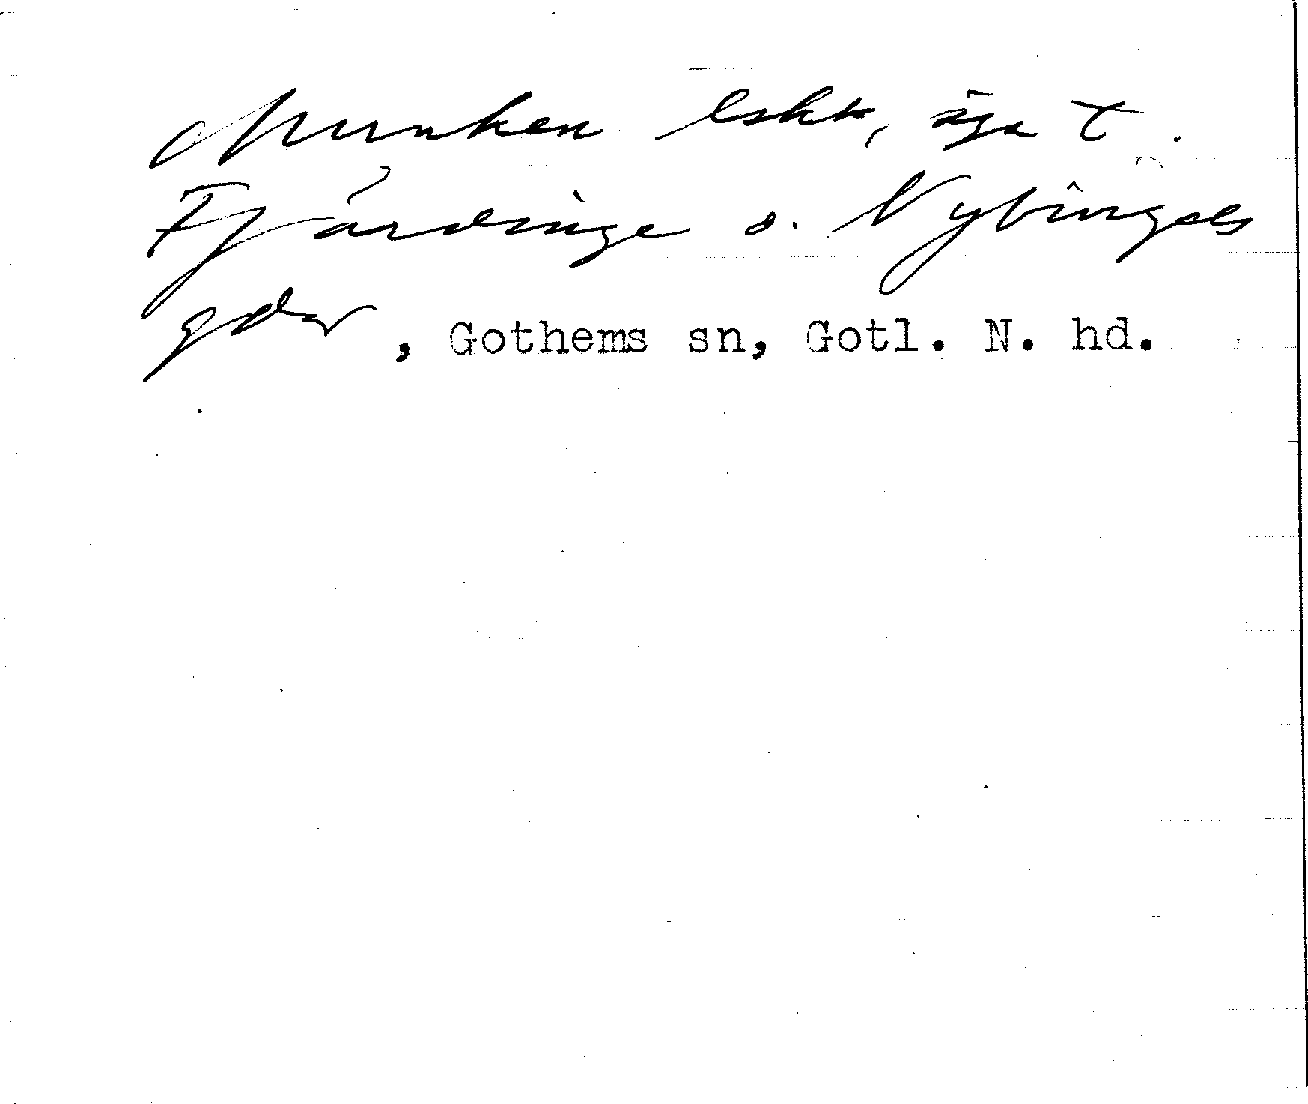 Munken lskr, äga t.
Fjärdinge o. Nybingels
gdar, Gothems sn, Gotl. N. hd.